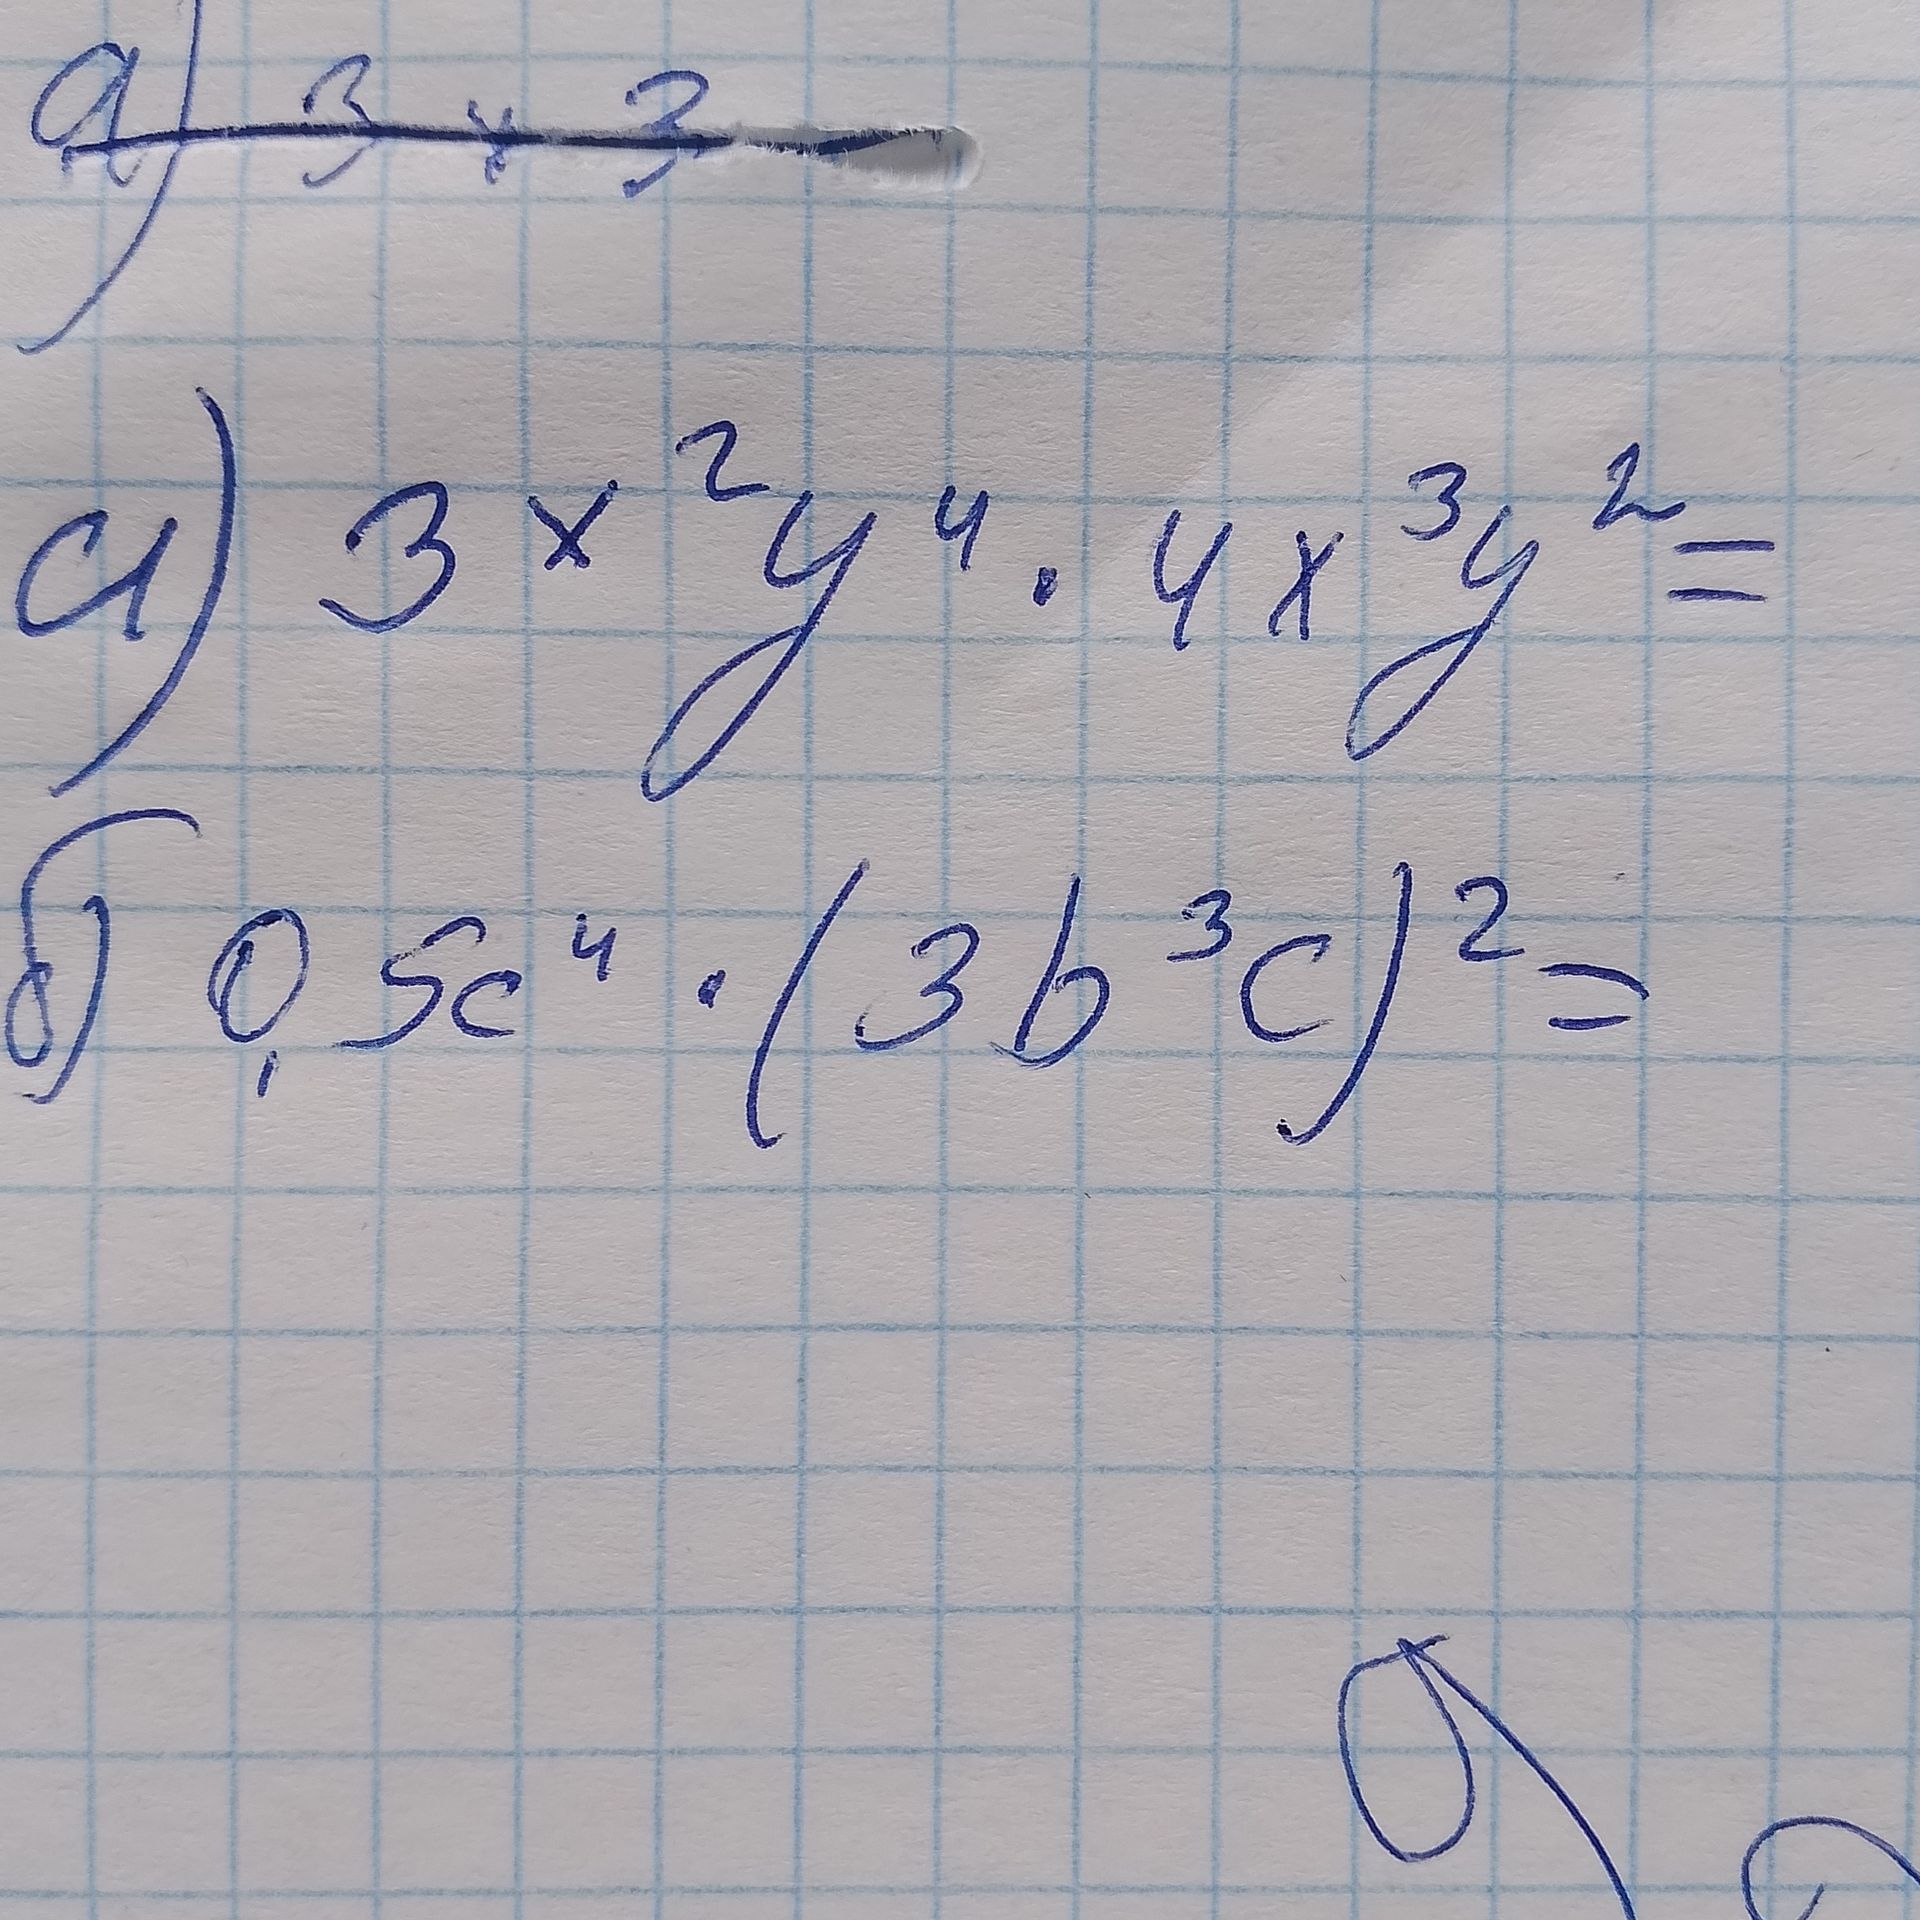 а) 3 x 3
а) 3x²y⁴ · 4x³y² =
б) 0,5c⁴ · (3b³c)² =